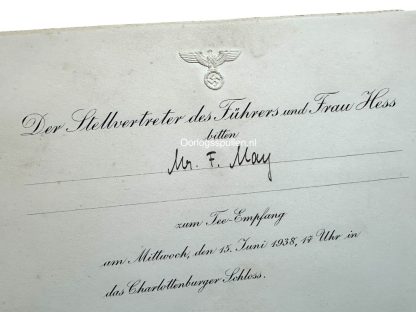 Der Stellvertreter des Führers und Frau Hess
bitten
Oorlogsspullen.nl
Mr. F. May
zum Tee-Empfang
am Mittwoch, den 15. Juni 1938, 17 Uhr in
das Charlottenburger Schloss.